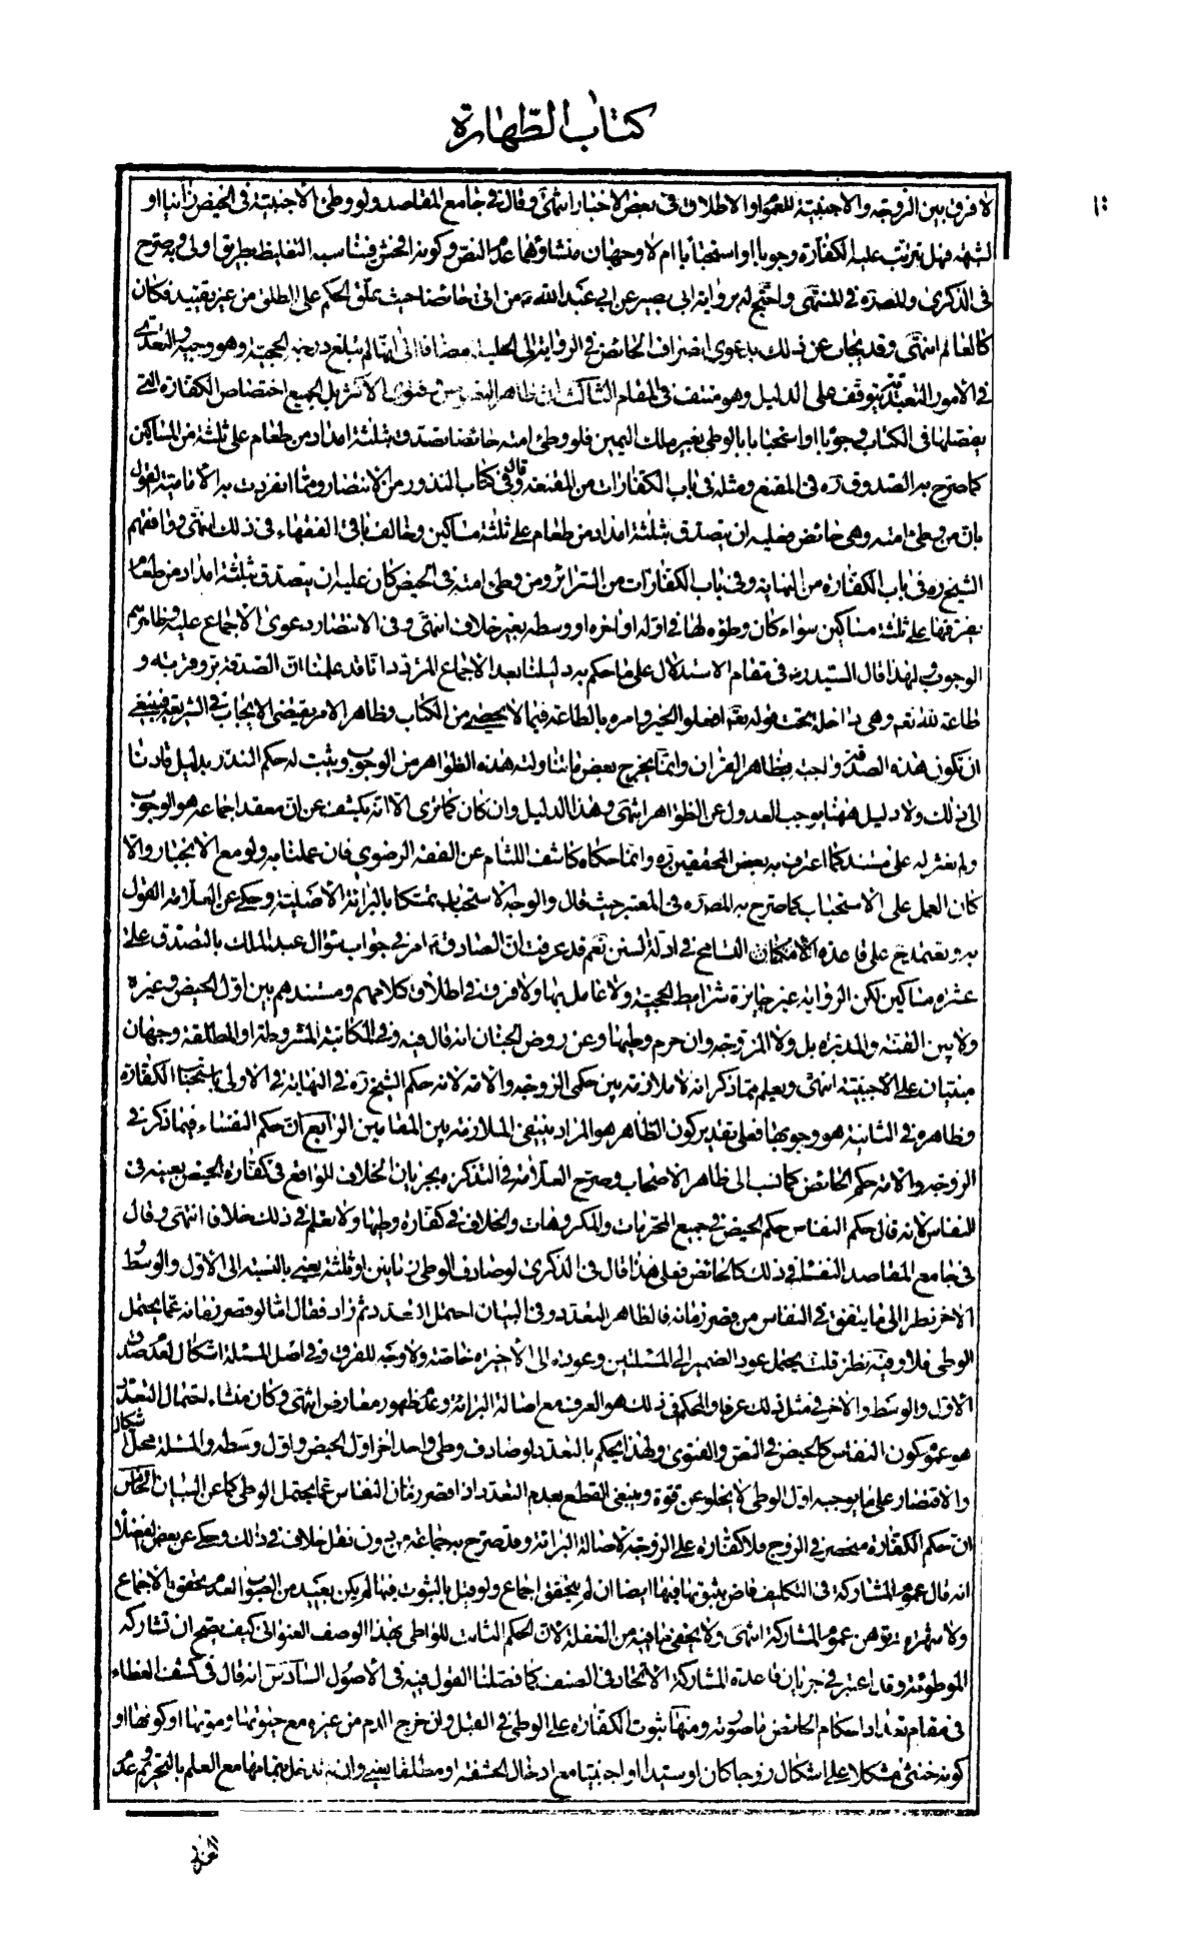 كتاب الطهارة
لا فرق بين الزوجة والاجنبية للعموم او الاطلاق فى بعض الاخبار انتهى وقال فى جامع المقاصد ولو وطئ الاجنبية فى الحيض زانيا او
لشبهة فهل يترتب عليه الكفارة وجوبا او استحبابا ام لا وجهان منشاؤهما عدم النص وكونه افحش فيناسب التغليظ بطريق اولى وبه صرح
فى الذكرى والمصره فى المنتهى واحتج له برواية ابى بصير عن ابى عبد الله ع من اتى حائضا حيث علق الحكم على المطلق من غير تقييد فكان
كالعام انتهى وقد يجاب عن ذلك بدعوى انصراف الحائض فى الرواية الى الحليلة مضافا الى انها لم تبلغ درجة الحجية وهو وجيه والتعدى
فى الامور التعبدية يتوقف على الدليل وهو منتف فى المقام الثالث ان ظاهر النصوص وفتوى الاكثر بل الجميع اختصاص الكفارة التى
بفضلها فى الكتاب وجوبا او استحبابا بالوطى بغير ملك اليمين فلو وطئ امته حائضا تصدق بثلثة امداد من طعام على ثلثة من المساكين
كما صرح به الصدوق ره فى المقنع ومثله فى باب الكفارات من المقنعة وقال فى كتاب النذور من الانتصار ومما انفردت به الامامية القول
بان من وطئ امته وهى حائض فعليه ان يتصدق بثلثة امداد من طعام على ثلثة مساكين وخالف باقى الفقهاء فى ذلك انتهى ووافقهم
الشيخ ره فى باب الكفارة من النهاية وفى باب الكفارات من السرائر ومن وطئ امته فى الحيض كان عليه ان يتصدق بثلثة امداد من طعام
يفرقها على ثلثة مساكين سواء كان وطؤه لها فى اوله او اخره او وسطه بغير خلاف انتهى وفى الانتصار دعوى الاجماع عليه وظاهرهم
الوجوب ولهذا قال السيد ره فى مقام الاستدلال على ما حكم به دليلنا بعد الاجماع المتردد انا قد علمنا ان الصدقة بر وقربة و
طاعة لله تعم وهى داخلة تحت قوله تعم افعلوا الخير وامره بالطاعة فيما لا يحصى من الكتاب وظاهر الامر يقتضى الايجاب فى الشريعة فينبغى
ان تكون هذه الصدقة واجبة بظاهر القران وانما يخرج بعض ما تناولته هذه الظواهر من الوجوب ويثبت له حكم الندب بدليل قادنا
الى ذلك ولا دليل ههنا يوجب العدول عن الظواهر انتهى وهذا الدليل وان كان كما ترى الا انه يكشف عن ان معقد اجماعه هو الوجوب
ولم نعثر له على مستند كما اعترف به بعض المحققين ره وانما حكاه كاشف اللثام عن الفقه الرضوى فان عملنا به ولو مع الانجبار والا
كان العمل على الاستحباب كما صرح به المصره فى المعتبر حيث قال والوجه الاستحباب تمسكا بالبراءة الاصلية وحكى عن العلامة القول
به ويعتمد ح على قاعدة الامكان التسامح فى ادلة السنن نعم قد عرفت ان الصادق ع امر فى جواب سؤال عبد الملك بالتصدق على
عشرة مساكين لكن الرواية غير حايزة شرائط الحجية ولا عامل بها ولا فرق فى اطلاق كلامهم ومستندهم بين اول الحيض وغيره
ولا بين القنة والمدبرة بل ولا المزوجة وان حرم وطيها وعن روض الجنان انه قال فيه وفى المكاتبة المشروطة او المطلقة وجهان
مبنيان على الاجنبية انتهى ويعلم مما ذكر انه لا ملازمة بين حكمى الزوجة والامة لانه حكم الشيخ ره فى النهاية فى الاولى باستحباب الكفارة
وظاهره فى الثانية هو وجوبها فعلى تقدير كون الظاهر هو المراد ينتفى الملازمة بين المقامين الرابع ان حكم النفساء فيما ذكر فى
الزوجة والامة حكم الحائض كما نسب الى ظاهر الاصحاب وصرح العلامة فى التذكرة بجريان الخلاف الواقع فى كفارة الحيض بعينه فى
النفاس لانه قال حكم النفاس حكم الحيض فى جميع المحرمات والمكروهات والخلاف فى كفارة وطيها ولا نعلم فى ذلك خلافا انتهى وقال
فى جامع المقاصد النفساء فى ذلك كالحائض فعلى هذا قال فى الذكرى لو صادف الوطى زمانين او ثلثة يعنى بالنسبة الى الاول والوسط و
الاخر نظرا الى ما يتفق فى النفاس من قصر زمانه فالظاهر التعدد وفى البيان احتمل التعدد ثم زاد فقال اما لو قصر زمانه عما يحتمل
الوطى فلا وفيه نظر قلت يحتمل عود الضمير الى المسئلتين وعوده الى الاخيرة خاصة ولا وجه للفرق وفى اصل المسئلة اشكال لعدم صدق
الاول والوسط والاخر فى مثل ذلك عرفا والمحكم فى ذلك هو العرف مع اصالة البراءة وعدم ظهور معارض انتهى وكان منشاء احتمال التعدد
هو عموم كون النفاس كالحيض فى النص والفتوى ولهذا يحكم بالتعدد لو صادف وطى واحد اخر اول الحيض واول وسطه والمسئلة محل اشكال
والاقتصار على ما يوجبه اول الوطى لا يخلو عن قوة وينبغى القطع بعدم التعدد اذا قصر زمان النفاس عما يحتمل الوطى كما عن البيان الخامس
ان حكم الكفارة منحصر فى الزوج فلا كفارة على الزوجة لاصالة البراءة وقد صرح به جماعة من دون نقل خلاف فى ذلك وحكى عن بعض الفضلاء
انه قال عموم المشاركة فى التكليف قاض بثبوتها فيها ايضا ان لم يتحقق اجماع ولو قيل بالثبوت فيها لم يكن بعيد من الصواب لعدم تحقق الاجماع
ولا شهرة توهن عموم المشاركة انتهى ولا يخفى ما فيه من الغفلة لان الحكم الثابت للواطى بهذا الوصف العنوانى كيف يصح ان تشاركه
الموطوئة وقد اعتبر فى جريان قاعدة المشاركة الاتحاد فى الصنف كما فصلنا القول فيه فى الاصول السادس انه قال فى كشف الغطاء
فى مقام تعداد احكام الحائض ما صورته ومنها ثبوت الكفارة على الوطى فى القبل وان خرج الدم من غيره مع حيوتها وموتها او كونها او
كونه خنثى مشكلا على اشكال زوجا كان او سيدا او اجنبيا مع ادخال الحشفة او مطلقا يعنى وان لم تدخل بتمامها مع العلم بالتحريم وعدم